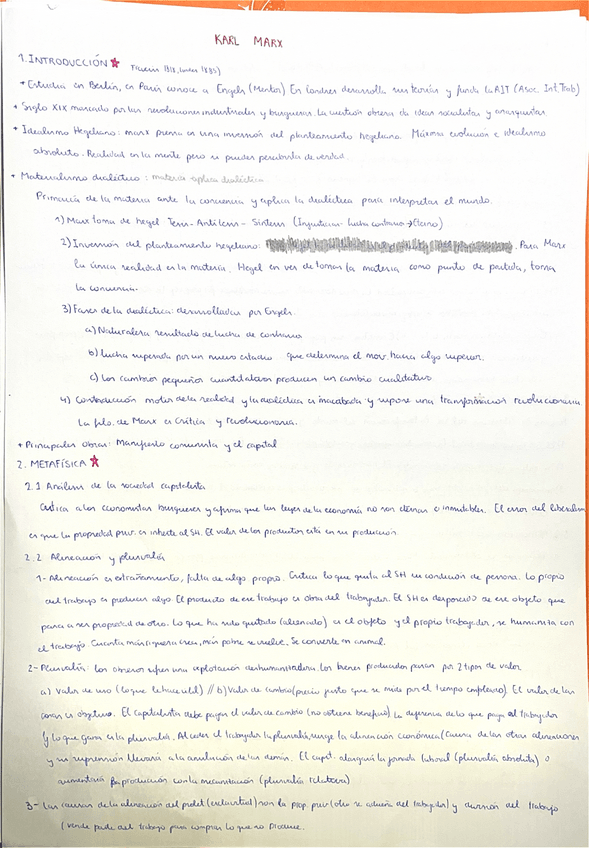 KARL MARX
1. INTRODUCCIÓN
* Estudia en Berlín, en París conoce a Engels (Mentor) En Londres desarrolla sus teorías y funda la AIT (Asoc. Int. Trab)
* Siglo XIX marcado por las revoluciones industriales y burguesas. La cuestión obrera da ideas socialistas y anarquistas.
* Idealismo Hegeliano: marx piensa en una inversión del planteamiento hegeliano. Máxima evolución e idealismo
absoluto. Realidad en la mente pero si puedes percibirla de verdad.
* Materialismo dialéctico: materia aplica dialéctica.
Primacía de la materia ante la conciencia y aplica la dialéctica para interpretar el mundo.
1) Marx toma de hegel Tesis - Antítesis - Síntesis lucha contrarios →
2) Inversión del planteamiento hegeliano: . Para Marx
la única realidad es la materia. Hegel en vez de tomar la materia como punto de partida, toma
la conciencia.
3) Fases de la dialéctica: desarrolladas por Engels.
a) Naturaleza resultado de lucha de contrarios
b) lucha superada por un nuevo estadio que determina el mov. hacia algo superior.
c) Los cambios pequeños cuantitativos producen un cambio cualitativo
4) Contradicción motor de la realidad y la dialéctica es inacabada y supone una transformación revolucionaria.
La filo. de Marx es Crítica y revolucionaria.
* Principales obras: Manifiesto comunista y el capital
2. METAFÍSICA
2.1 Análisis de la sociedad capitalista
Critica a los economistas burgueses y afirma que las leyes de la economía no son eternas o inmutables. El error del liberalism
es que la propiedad priv. es inherte al SH. El valor de los productos está en su producción
2.2 Alineación y plusvalía
1- Alineación es extrañamiento, falta de algo propio. Critica lo que quita al SH su condición de persona. Lo propio
del trabajo es producir algo. El producto de ese trabajo es obra del trabajador. El SH es desposeído de ese objeto que
pasa a ser propiedad de otro. Lo que ha sido quitado (alienado) es el objeto y el propio trabajador, se humanita con
el trabajo. Cuanta más riqueza crea, más pobre se vuelve. Se convierte en animal.
2- Plusvalía: los obreros sufren una explotación deshumanizadora. Los bienes producidos pasan por 2 tipos de valor
a) Valor de uso (lo que le hace útil) // b) Valor de cambio (precio justo que se mide por el tiempo empleado). El valor de las
cosas es objetivo. El capitalista debe pagar el valor de cambio (no obtiene beneficio) la diferencia de lo que paga al trabajador
y lo que gana es la plusvalía. Al ceder el trabajador la plusvalía, surge la alienación económica (causa de las otras alienaciones
y su supresión llevaría a la anulación de las demás. El capit. alargaría la jornada laboral (plusvalía absoluta) o
aumentaría la producción con la mecanización (plusvalía relativa)
3- Las causas de la alineación del prolet. (esclavitud) son la prop. priv (otro se adueña del trabajador) y división del trabajo
(vende parte del trabajo para comprar lo que no Produce.